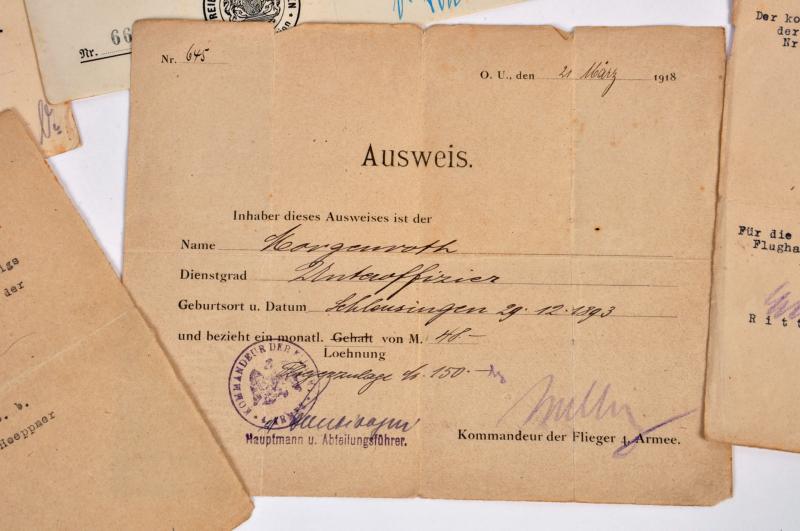 Nr. 66
Nr. 645
O. U., den 21 März 1918
Ausweis.
Inhaber dieses Ausweises ist der
Name Morgenroth
Dienstgrad Unteroffizier
Geburtsort u. Datum Schleusingen 29. 12. 1893
und bezieht ein monatl. Gehalt von M. 48.—
Loehnung
Fliegerzulage M. 150.—
KOMMANDEUR DER FLIEGER
4. ARMEE
Hauptmann u. Abteilungsführer.
Kommandeur der Flieger 4. Armee.
der
s. b.
Hoeppner
Der ko
der
Nr
Für die
Flugha
Ritt